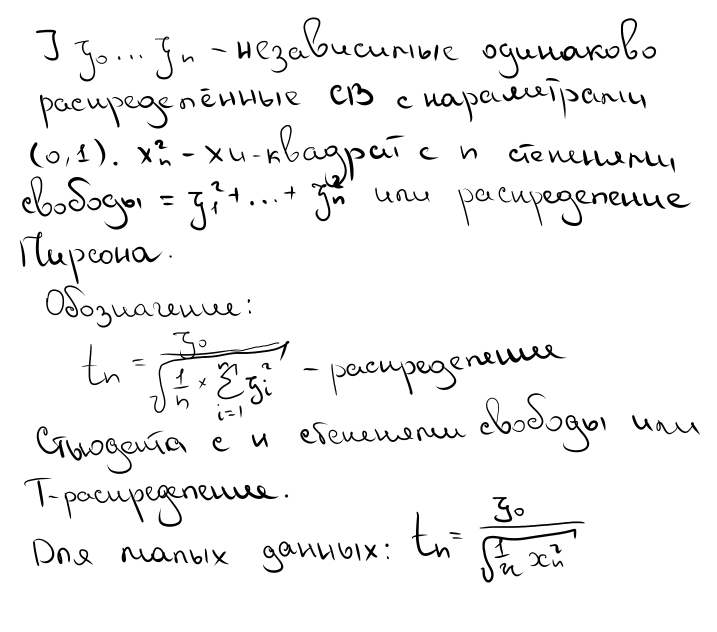 ] ξ₀ ... ξₙ - независимые одинаково
распределённые СВ с параметрами
(0,1). χ²ₙ - хи-квадрат с n степенями
свободы = ξ₁² + ... + ξₙ² или распределение
Пирсона.
Обозначение:
tₙ = ξ₀ / √(1/n × ∑ᵢ₌₁ⁿ ξᵢ²) - распределение
Стьюдента с n степенями свободы или
Т-распределение.
Для малых данных: tₙ = ξ₀ / √(1/n χ²ₙ)